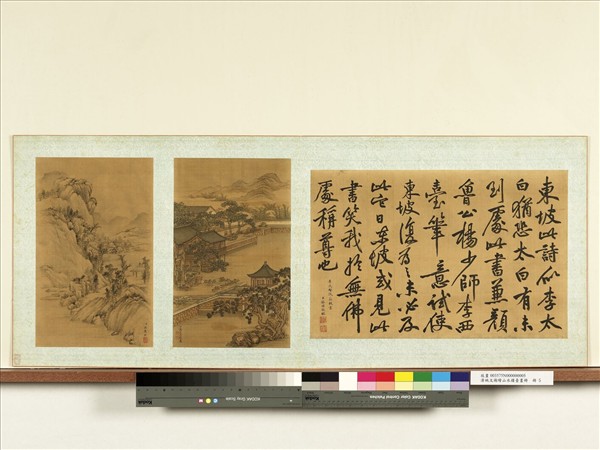 東坡此詩似李太
白猶恐太白有未
到處此書兼顏
魯公楊少師李西
臺筆意試使
東坡復為之未必及
此它日東坡或見此
書笑我於無佛
處稱尊也
KODAK Gray Scale
Kodak
KODAK Color Control Patches